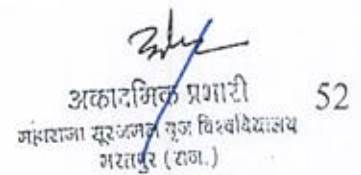 अकादमिक प्रभारी 52
महाराजा सूरजमल बृज विश्वविद्यालय
भरतपुर (राज.)